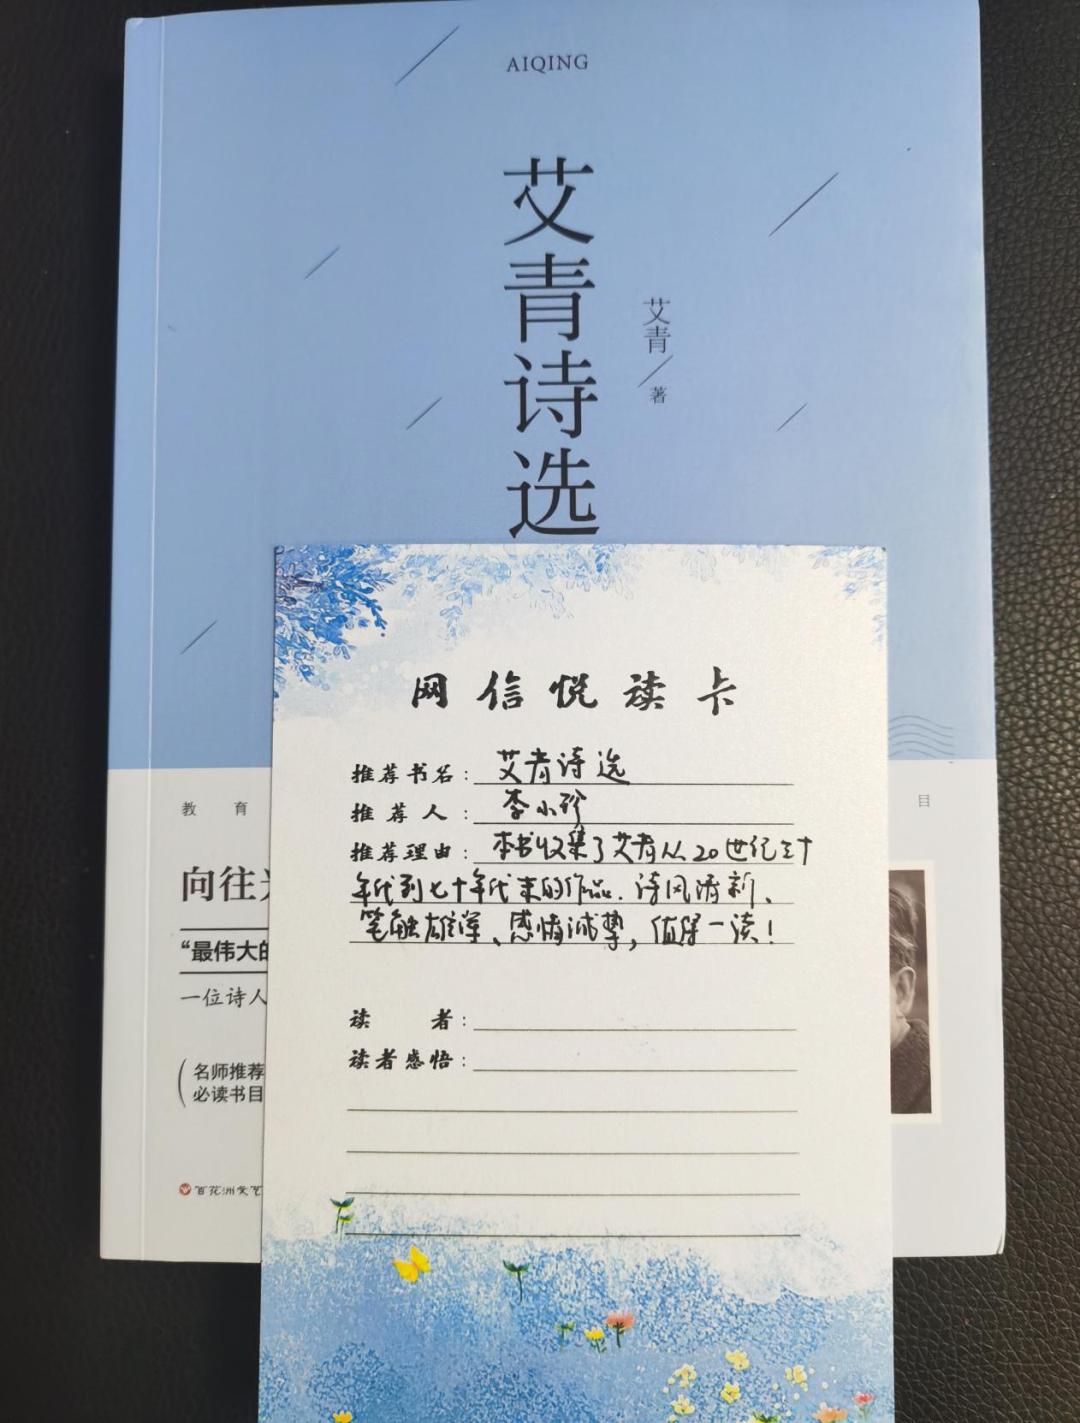 AIQING
艾青诗选
艾青 著
教 育
目
向往
“最伟大的
一位诗人
名师推荐
必读书目
百花洲文艺
网信悦读卡
推荐书名：艾青诗选
推荐人：李小珍
推荐理由：本书收集了艾青从20世纪三十
年代到七十年代末的作品．诗风清新、
笔触雄浑、感情诚挚，值得一读！
读者：
读者感悟：